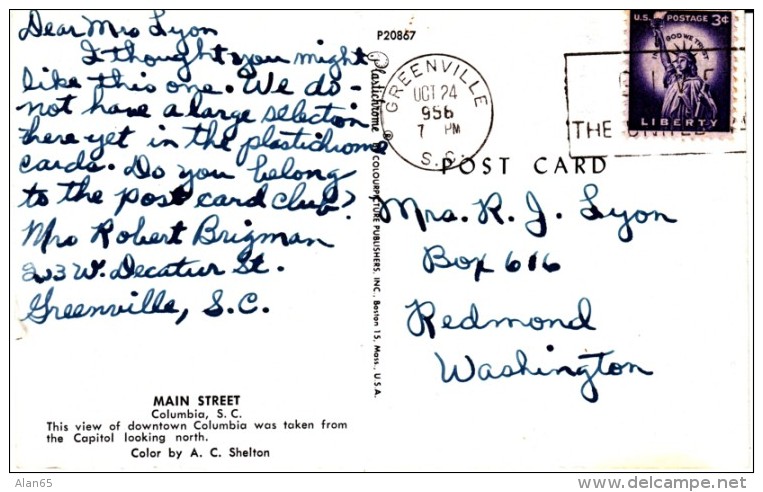 Dear Mrs Lyon
I thought you might
like this one. We do -
not have a large selection
here yet in the plastichrome
cards. Do you belong
to the post card club?
Mrs Robert Brigman
W. Decatur St.
Greenville, S.C.
MAIN STREET
Columbia, S. C.
This view of downtown Columbia was taken from
the Capitol looking north.
Color by A. C. Shelton
P20867
Plastichrome ® by COLOURPICTURE PUBLISHERS, INC., Boston 15, Mass., U.S.A.
GREENVILLE
OCT 24
956
7 PM
S. C.
THE UNITED
U.S. POSTAGE 3¢
IN GOD WE TRUST
LIBERTY
POST CARD
Mrs. R. J. Lyon
Box 616
Redmond
Washington
Alan65
delcampe.net